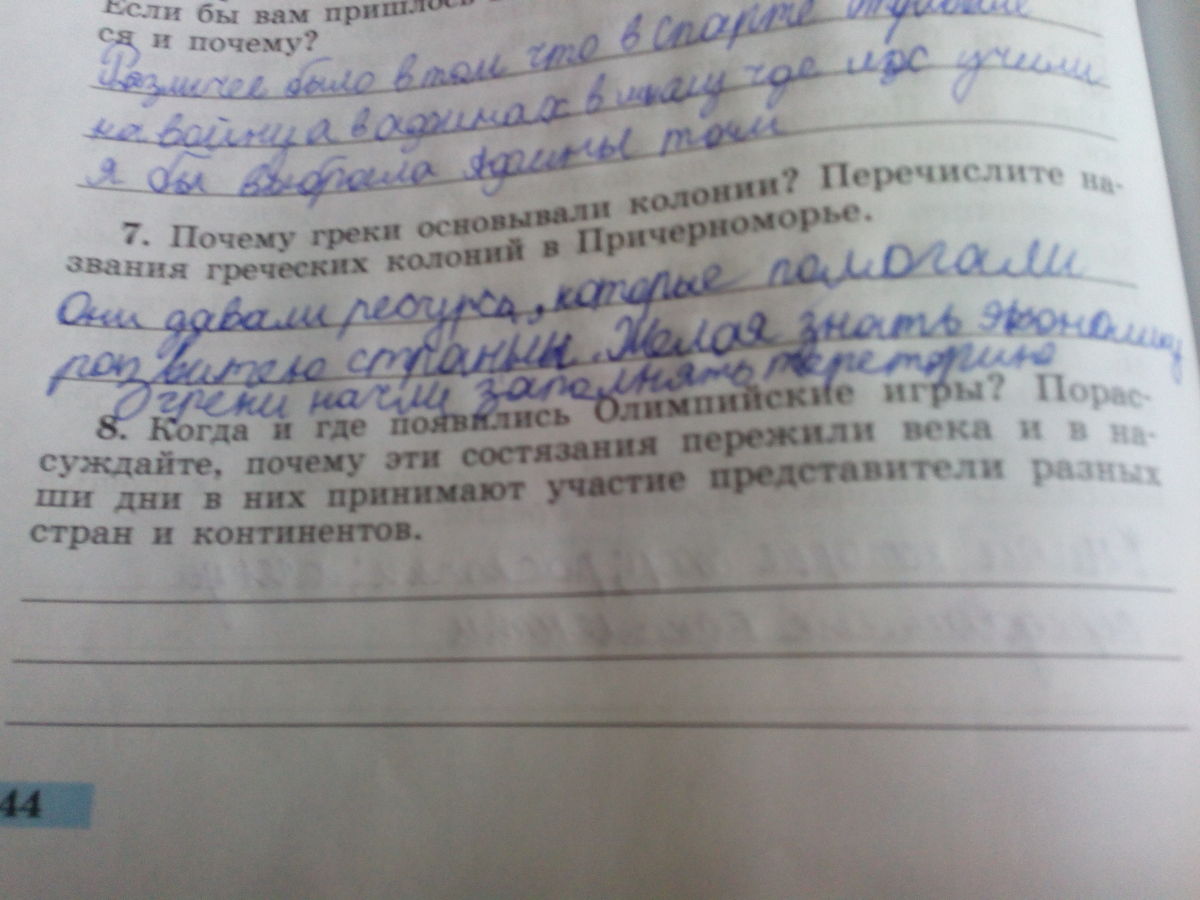 Если бы вам пришлось
ся и почему?
было в том что в спарте
на войну а в афинах в школу где их учили
я бы выбрала Афины
7. Почему греки основывали колонии? Перечислите на-
звания греческих колоний в Причерноморье.
Они давали ресурсы, которые помогали
страны. Желая знать
греки начли заполнять
8. Когда и где появились Олимпийские игры? Порас-
суждайте, почему эти состязания пережили века и в на-
ши дни в них принимают участие представители разных
стран и континентов.
44